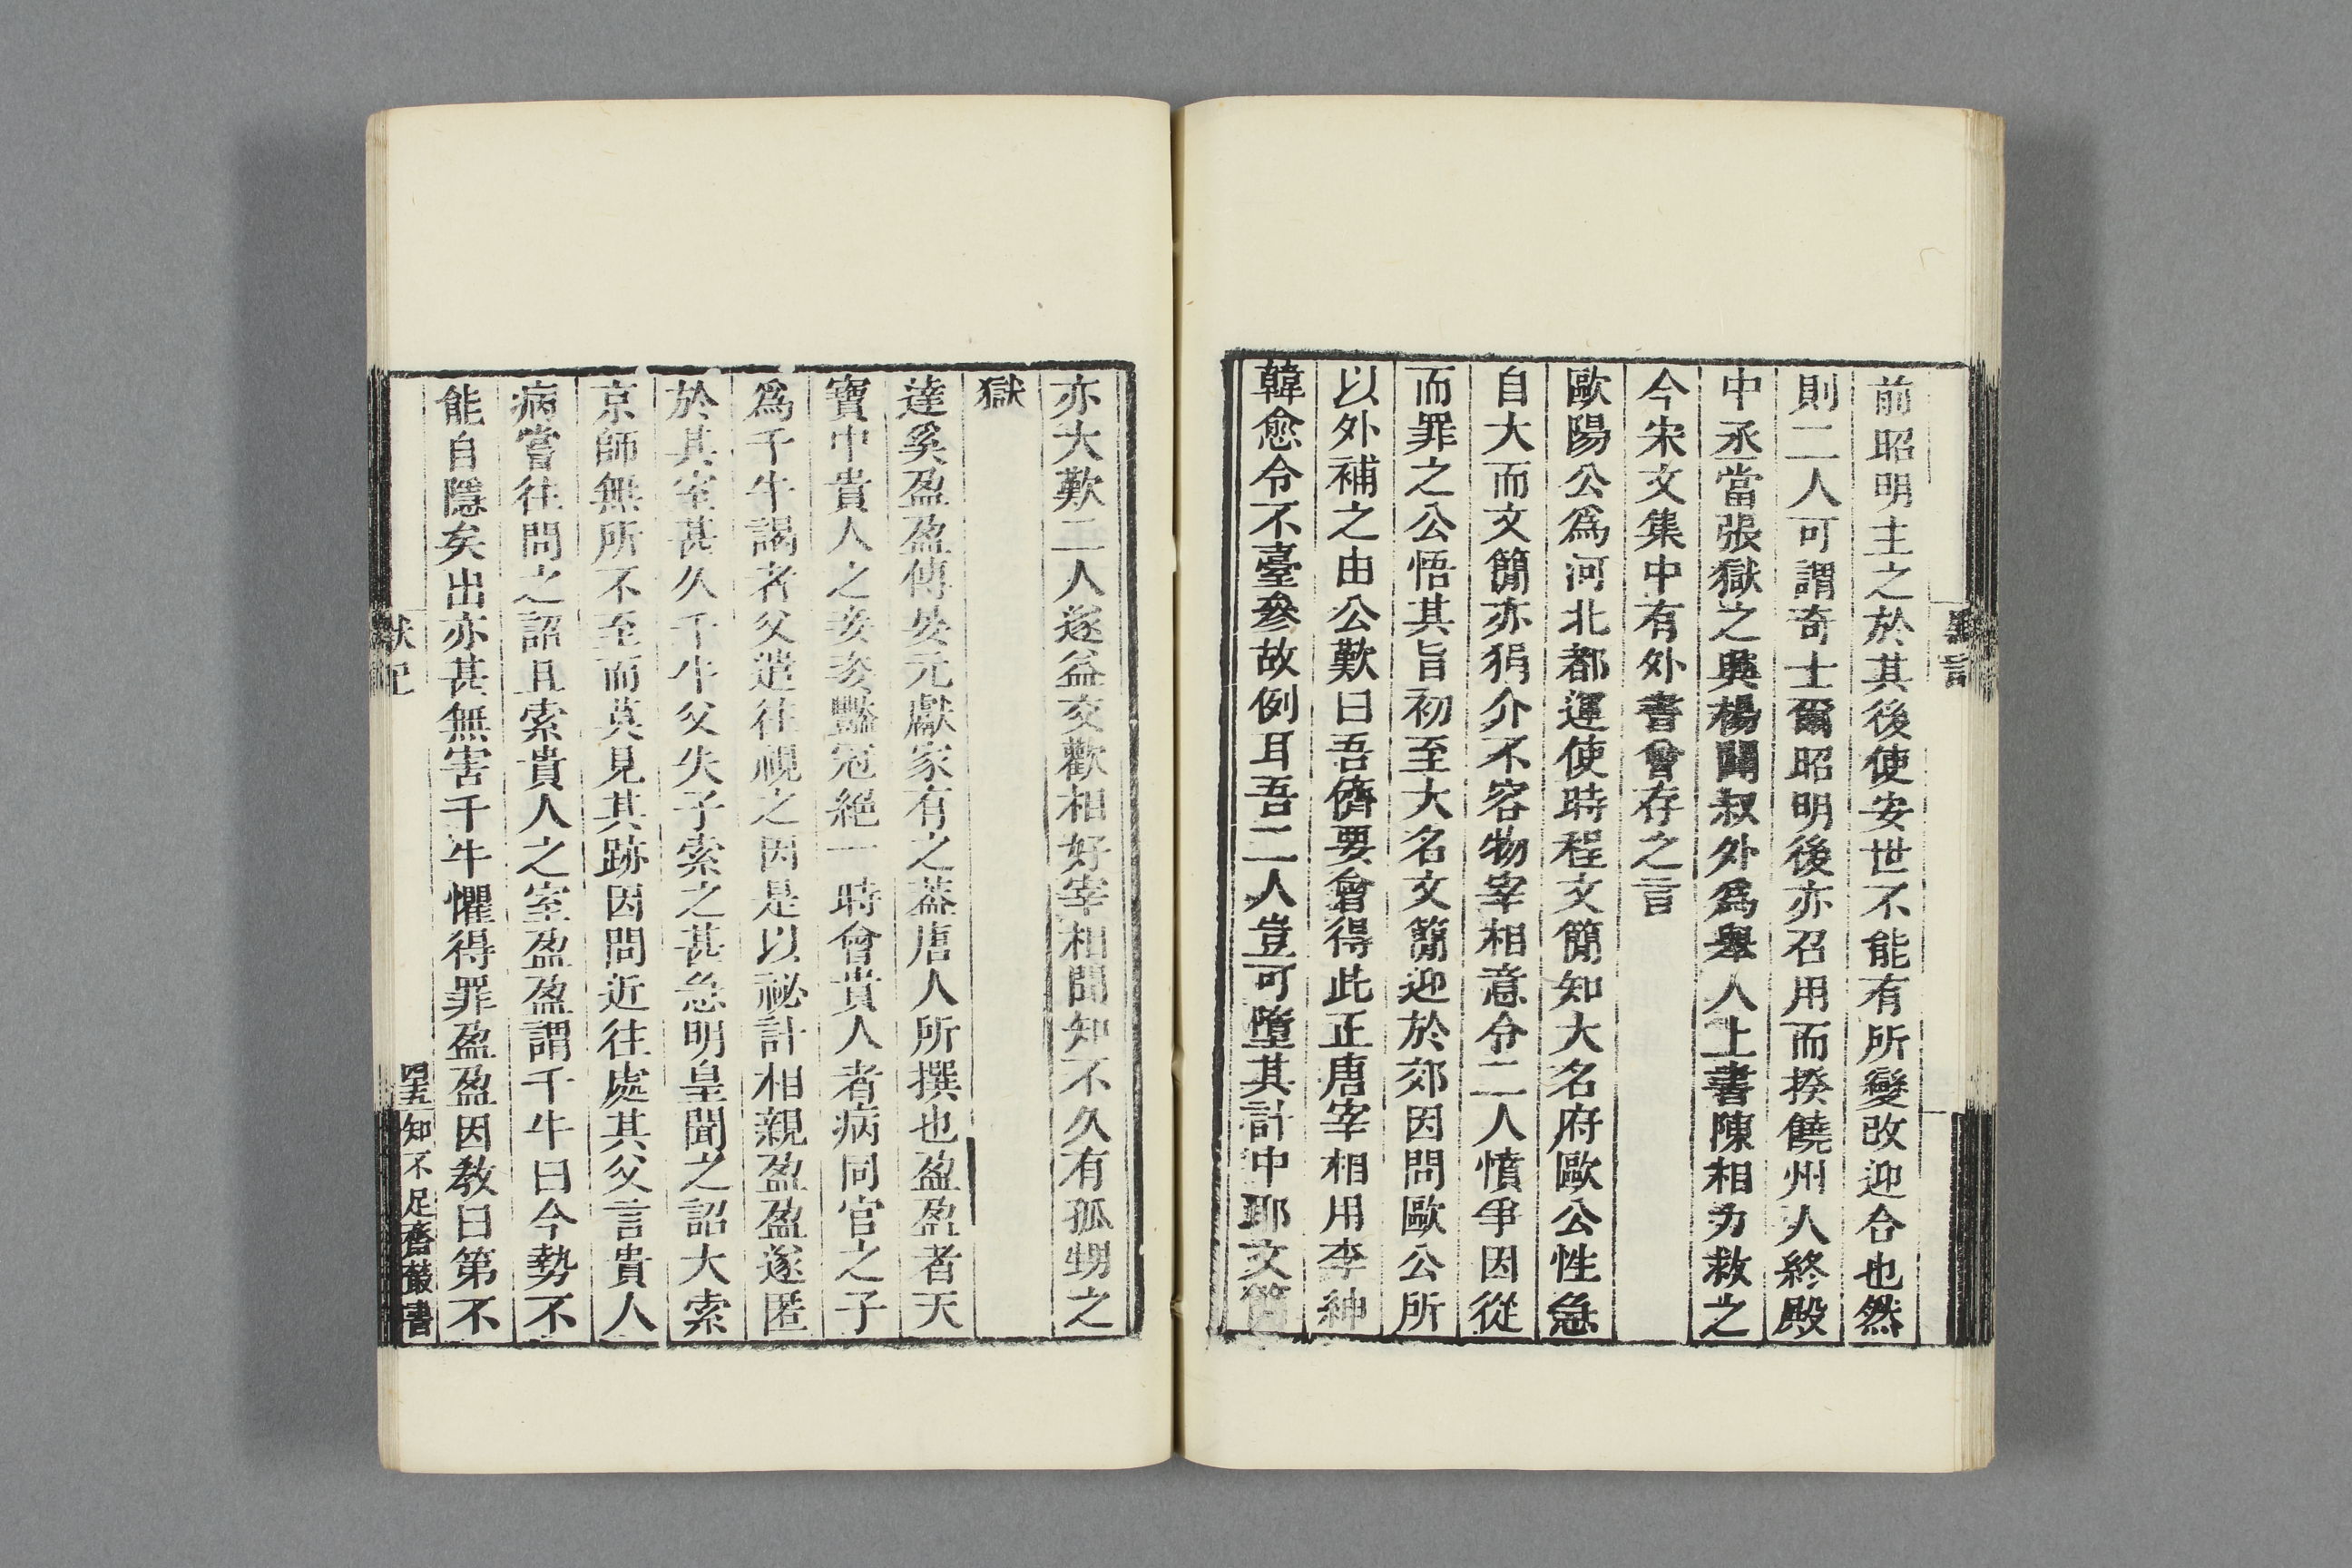 默記
前昭明主之於其後使安世不能有所變改迎合也然
則二人可謂奇士爾昭明後亦召用而揆饒州人終殿
中丞當張獄之興楊闢叔外爲舉人上書陳相力救之
今宋文集中有外書曾存之言
歐陽公爲河北都運使時程文簡知大名府歐公性急
自大而文簡亦狷介不容物宰相意令二人憤爭因從
而罪之公悟其旨初至大名文簡迎於郊因問歐公所
以外補之由公歎曰吾儕要會得此正唐宰相用李紳
韓愈令不臺參故例耳吾二人豈可墮其計中耶文簡
亦大歎二人遂益交歡相好宰相聞知不久有孤甥之
獄
達奚盈盈傳晏元獻家有之蓋唐人所撰也盈盈者天
寶中貴人之妾妾豔冠絕一時會貴人者病同官之子
爲千牛謁者父遣往視之因是以祕計相親盈盈遂匿
於其室甚久千牛父失子索之甚急明皇聞之詔大索
京師無所不至而莫見其跡因問近往處其父言貴人
病嘗往問之詔且索貴人之室盈盈謂千牛曰今勢不
能自隱矣出亦甚無害千牛懼得罪盈盈因教曰第不
默記
四五
知不足齋叢書